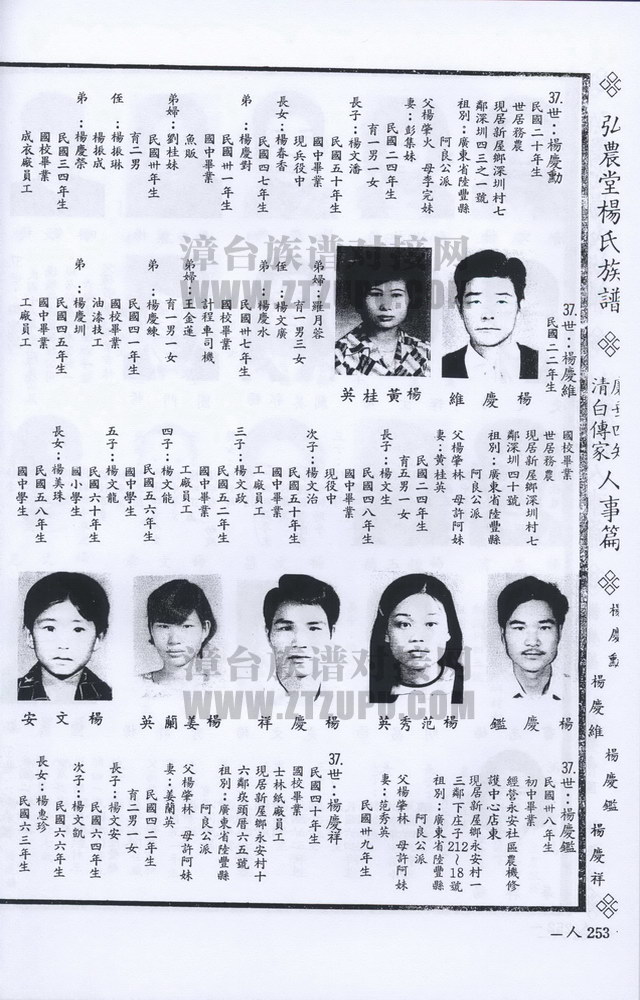 弘農堂楊氏族譜
清白傳家
人事篇
楊慶勳
楊慶維
楊慶鑑
楊慶祥
37.世：楊慶勳
民國二十年生
世居務農
現居新屋鄉深圳村七
鄰深圳四三之一號
祖別：廣東省陸豐縣
阿良公派
父楊肇火　母李完妹
妻：彭集妹
民國二四年生
育一男一女
長子：楊文潘
民國五十年生
國中畢業
現兵役中
長女：楊春香
民國四七年生
弟：楊慶對
民國卅一年生
國中畢業
魚販
弟婦：劉桂妹
民國卅年生
育二男
侄：楊振琳
楊振成
弟：楊慶榮
民國三四年生
國校畢業
成衣廠員工
弟婦：羅月蓉
育一男三女
侄：楊文廣
弟：楊慶水
民國卅七年生
國校畢業
計程車司機
弟婦：王金蓮
育一男一女
弟：楊慶練
民國四一年生
國校畢業
油漆技工
弟：楊慶圳
民國四五年生
國中畢業
工廠員工
英桂黃楊
維慶楊
37.世：楊慶維
民國二二年生
國校畢業
世居務農
現居新屋鄉深圳村七
鄰深圳四十號
祖別：廣東省陸豐縣
阿良公派
父楊肇林　母許阿妹
妻：黃桂英
民國二四年生
育五男一女
長子：楊文生
民國四八年生
國中畢業
現役中
次子：楊文治
民國五十年生
國中畢業
工廠員工
三子：楊文政
民國五二年生
國中畢業
工廠員工
四子：楊文能
民國五六年生
國中學生
五子：楊文龍
民國六十年生
國小學生
長女：楊美珠
民國五八年生
國中學生
安文楊
英蘭姜楊
祥慶楊
英秀范楊
鑑慶楊
37.世：楊慶鑑
民國卅八年生
初中畢業
經營永安社區農機修
護中心店東
現居新屋鄉永安村一
三鄰下庄子212～18號
祖別：廣東省陸豐縣
阿良公派
父楊肇林　母許阿妹
妻：范秀英
民國卅九年生
37.世：楊慶祥
民國四十年生
國校畢業
士林紙廠員工
現居新屋鄉永安村十
六鄰崁頭厝六五號
祖別：廣東省陸豐縣
阿良公派
父楊肇林　母許阿妹
妻：姜蘭英
民國四二年生
育二男一女
長子：楊文安
民國六四年生
次子：楊文凱
民國六六年生
長女：楊惠珍
民國六三年生
一人 253
漳台族谱对接网
WWW.ZTZUPU.COM
漳台族谱对接网
WWW.ZTZUPU.COM